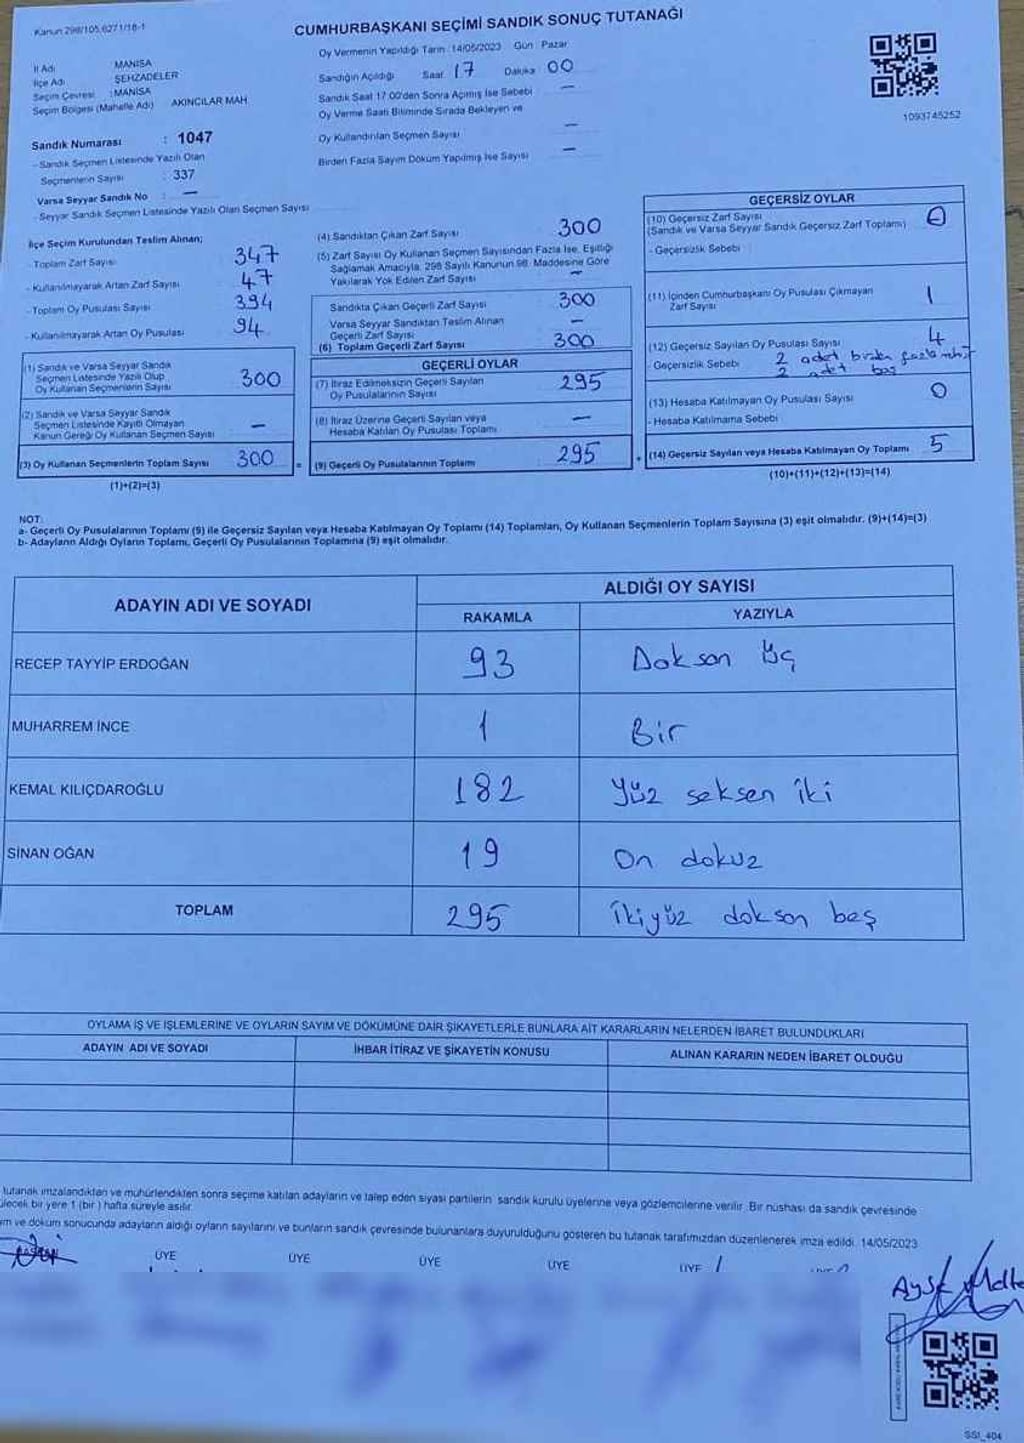 Kanun 298/105,6271/18-1
CUMHURBAŞKANI SEÇİMİ SANDIK SONUÇ TUTANAĞI
Oy Vermenin Yapıldığı Tarih : 14/05/2023 Gün : Pazar
İl Adı : MANİSA
İlçe Adı : ŞEHZADELER
Seçim Çevresi : MANİSA
Seçim Bölgesi (Mahalle Adı) AKINCILAR MAH.
Sandık Numarası : 1047
- Sandık Seçmen Listesinde Yazılı Olan
Seçmenlerin Sayısı : 337
Varsa Seyyar Sandık No : —
- Seyyar Sandık Seçmen Listesinde Yazılı Olan Seçmen Sayısı
Sandığın Açıldığı Saat 17 Dakika 00
Sandık Saat 17:00'den Sonra Açılmış İse Sebebi —
Oy Verme Saati Bitiminde Sırada Bekleyen ve
Oy Kullandırılan Seçmen Sayısı —
Birden Fazla Sayım Döküm Yapılmış İse Sayısı —
1093745252
İlçe Seçim Kurulundan Teslim Alınan;
- Toplam Zarf Sayısı 347
- Kullanılmayarak Artan Zarf Sayısı 47
- Toplam Oy Pusulası Sayısı 394
- Kullanılmayarak Artan Oy Pusulası 94
(1) Sandık ve Varsa Seyyar Sandık
Seçmen Listesinde Yazılı Olup
Oy Kullanan Seçmenlerin Sayısı 300
(2) Sandık ve Varsa Seyyar Sandık
Seçmen Listesinde Kayıtlı Olmayan
Kanun Gereği Oy Kullanan Seçmen Sayısı —
(3) Oy Kullanan Seçmenlerin Toplam Sayısı 300 =
(1)+(2)=(3)
(4) Sandıktan Çıkan Zarf Sayısı 300
(5) Zarf Sayısı Oy Kullanan Seçmen Sayısından Fazla İse, Eşitliği
Sağlamak Amacıyla, 298 Sayılı Kanunun 98. Maddesine Göre
Yakılarak Yok Edilen Zarf Sayısı —
Sandıkta Çıkan Geçerli Zarf Sayısı 300
Varsa Seyyar Sandıktan Teslim Alınan
Geçerli Zarf Sayısı —
(6) Toplam Geçerli Zarf Sayısı 300
GEÇERLİ OYLAR
(7) İtiraz Edilmeksizin Geçerli Sayılan
Oy Pusulalarının Sayısı 295
(8) İtiraz Üzerine Geçerli Sayılan veya
Hesaba Katılan Oy Pusulası Toplamı —
(9) Geçerli Oy Pusulalarının Toplamı 295 +
GEÇERSİZ OYLAR
(10) Geçersiz Zarf Sayısı
(Sandık ve Varsa Seyyar Sandık Geçersiz Zarf Toplamı) 0
- Geçersizlik Sebebi
(11) İçinden Cumhurbaşkanı Oy Pusulası Çıkmayan
Zarf Sayısı 1
(12) Geçersiz Sayılan Oy Pusulası Sayısı 4
- Geçersizlik Sebebi 2 adet birden fazla
2 adet boş
(13) Hesaba Katılmayan Oy Pusulası Sayısı 0
- Hesaba Katılmama Sebebi
(14) Geçersiz Sayılan veya Hesaba Katılmayan Oy Toplamı 5
(10)+(11)+(12)+(13)=(14)
NOT:
a- Geçerli Oy Pusulalarının Toplamı (9) ile Geçersiz Sayılan veya Hesaba Katılmayan Oy Toplamı (14) Toplamları, Oy Kullanan Seçmenlerin Toplam Sayısına (3) eşit olmalıdır. (9)+(14)=(3)
b- Adayların Aldığı Oyların Toplamı, Geçerli Oy Pusulalarının Toplamına (9) eşit olmalıdır.
ADAYIN ADI VE SOYADI
ALDIĞI OY SAYISI
RAKAMLA YAZIYLA
RECEP TAYYİP ERDOĞAN 93 Doksan üç
MUHARREM İNCE 1 Bir
KEMAL KILIÇDAROĞLU 182 Yüz seksen iki
SİNAN OĞAN 19 On dokuz
TOPLAM 295 İkiyüz doksan beş
OYLAMA İŞ VE İŞLEMLERİNE VE OYLARIN SAYIM VE DÖKÜMÜNE DAİR ŞİKAYETLERLE BUNLARA AİT KARARLARIN NELERDEN İBARET BULUNDUKLARI
ADAYIN ADI VE SOYADI İHBAR İTİRAZ VE ŞİKAYETİN KONUSU ALINAN KARARIN NEDEN İBARET OLDUĞU
tutanak imzalandıktan ve mühürlendikten sonra seçime katılan adayların ve talep eden siyasi partilerin sandık kurulu üyelerine veya gözlemcilerine verilir. Bir nüshası da sandık çevresinde
ülecek bir yere 1 (bir) hafta süreyle asılır.
ım ve döküm sonucunda adayların aldığı oyların sayılarını ve bunların sandık çevresinde bulunanlara duyurulduğunu gösteren bu tutanak tarafımızdan düzenlenerek imza edildi. 14/05/2023
ÜYE ÜYE ÜYE ÜYE ÜYE
Ayşe
SSI_404